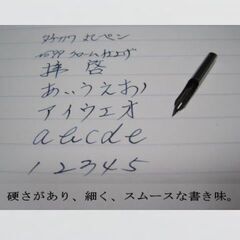 タチカワ さじペン
No.99 クローム仕上げ
拝啓
あいうえお
アイウエオ
abcde
12345
硬さがあり、細く、スムースな書き味。